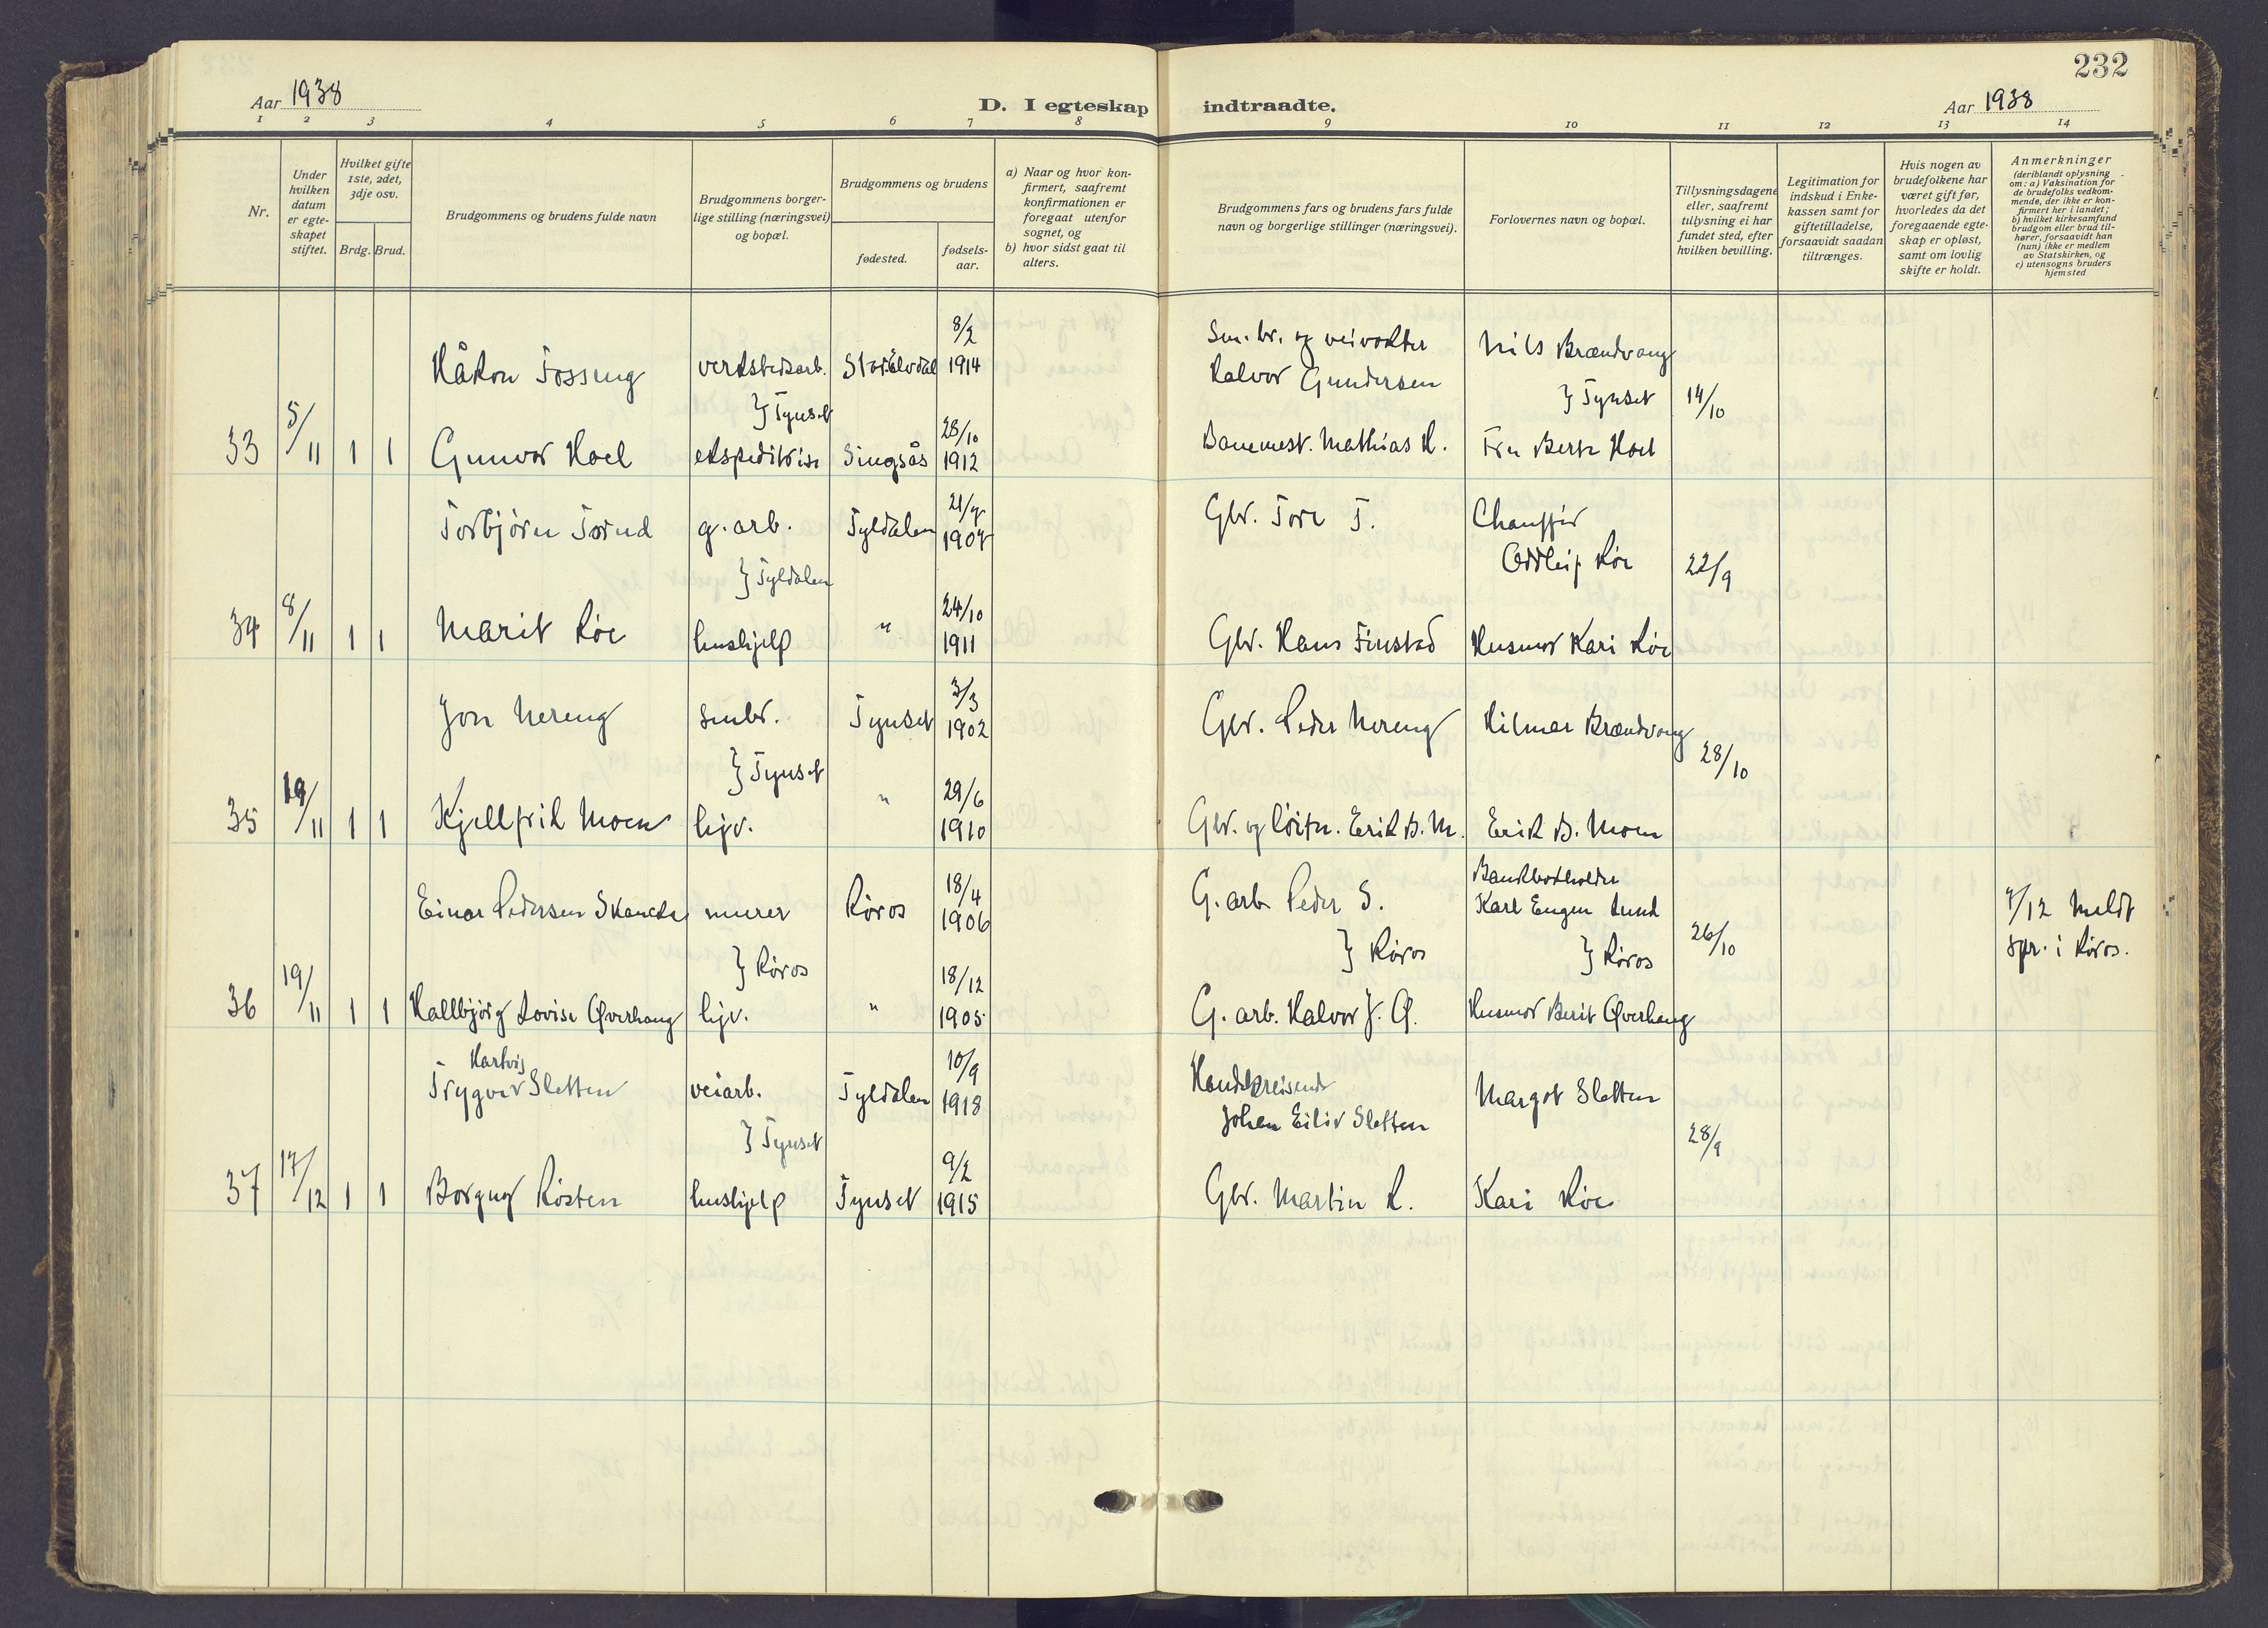 232
Aar 1938
D. I egteskap indtraadte.
Aar 1938
1 2 3 4 5 6 7 8 9 10 11 12 13 14
Nr.
Under hvilken datum er egteskapet stiftet.
Hvilket gifte 1ste, 2det, 3dje osv.
Brdg. Brud.
Brudgommens og brudens fulde navn
Brudgommens borgerlige stilling (næringsvei) og bopæl.
Brudgommens og brudens
fødested.
fødselsaar.
a) Naar og hvor konfirmert, saafremt konfirmationen er foregaat utenfor sognet, og
b) hvor sidst gaat til alters.
Brudgommens fars og brudens fars fulde navn og borgerlige stillinger (næringsvei).
Forlovernes navn og bopæl.
Tillysningsdagene eller, saafremt tillysning ei har fundet sted, efter hvilken bevilling.
Legitimation for indskud i Enkekassen samt for giftetilladelse, forsaavidt saadan tiltrænges.
Hvis nogen av brudefolkene har været gift før, hvorledes da det foregaaende egteskap er opløst, samt om lovlig skifte er holdt.
Anmerkninger (deriblandt oplysning om: a) Vaksination for de brudefolks vedkommende, der ikke er konfirmert her i landet; b) hvilket kirkesamfund brudgom eller brud tilhører, forsaavidt han (hun) ikke er medlem av Statskirken, og c) utensogns bruders hjemsted
Håkon Fosseng verkstedsarb. Stor-Elvdal 8/2 1914 Sm. br. og veivokter Halvor Gundersen Nils Brændvang
} Tynset } Tynset 14/10
33 5/11 1 1 Gunvor Hoel ekspeditrise Singsås 28/10 1912 Banemest. Mathias H. Fru Berte Hoel
Torbjørn Torud g. arb. Tyldalen 21/7 1907 Gbr. Tore T. Chauffør Oddleif Røe
} Tyldalen 22/9
34 8/11 1 1 Marit Røe hushjelp " 24/10 1911 Gbr. Hans Finstad Husmor Kari Røe
Jon Nereng smbr. Tynset 3/3 1902 Gbr. Peder Nereng Hilmar Brændvang
} Tynset 28/10
35 19/11 1 1 Kjellfrid Moen hjv. " 29/6 1910 Gbr. og løitn. Erik B. M. Erik B. Moen
Einar Pedersen Skancke murer Røros 18/4 1906 G. arb. Peder S. Bankbokholder Karl Eugen Lund 7/12 Meldt spr. i Røros.
} Røros } Røros } Røros 26/10
36 19/11 1 1 Hallbjørg Lovise Øverhaug hjv. " 18/12 1905 G. arb. Halvor J. Ø. Husmor Berit Øverhaug
Trygve Hartvig Sletten veiarb. Tyldalen 10/9 1918 Handelsreisende Johan Eiliv Sletten Margot Sletten
} Tynset 28/9
37 17/12 1 1 Borgny Røsten hushjelp Tynset 9/2 1915 Gbr. Martin R. Kari Røe